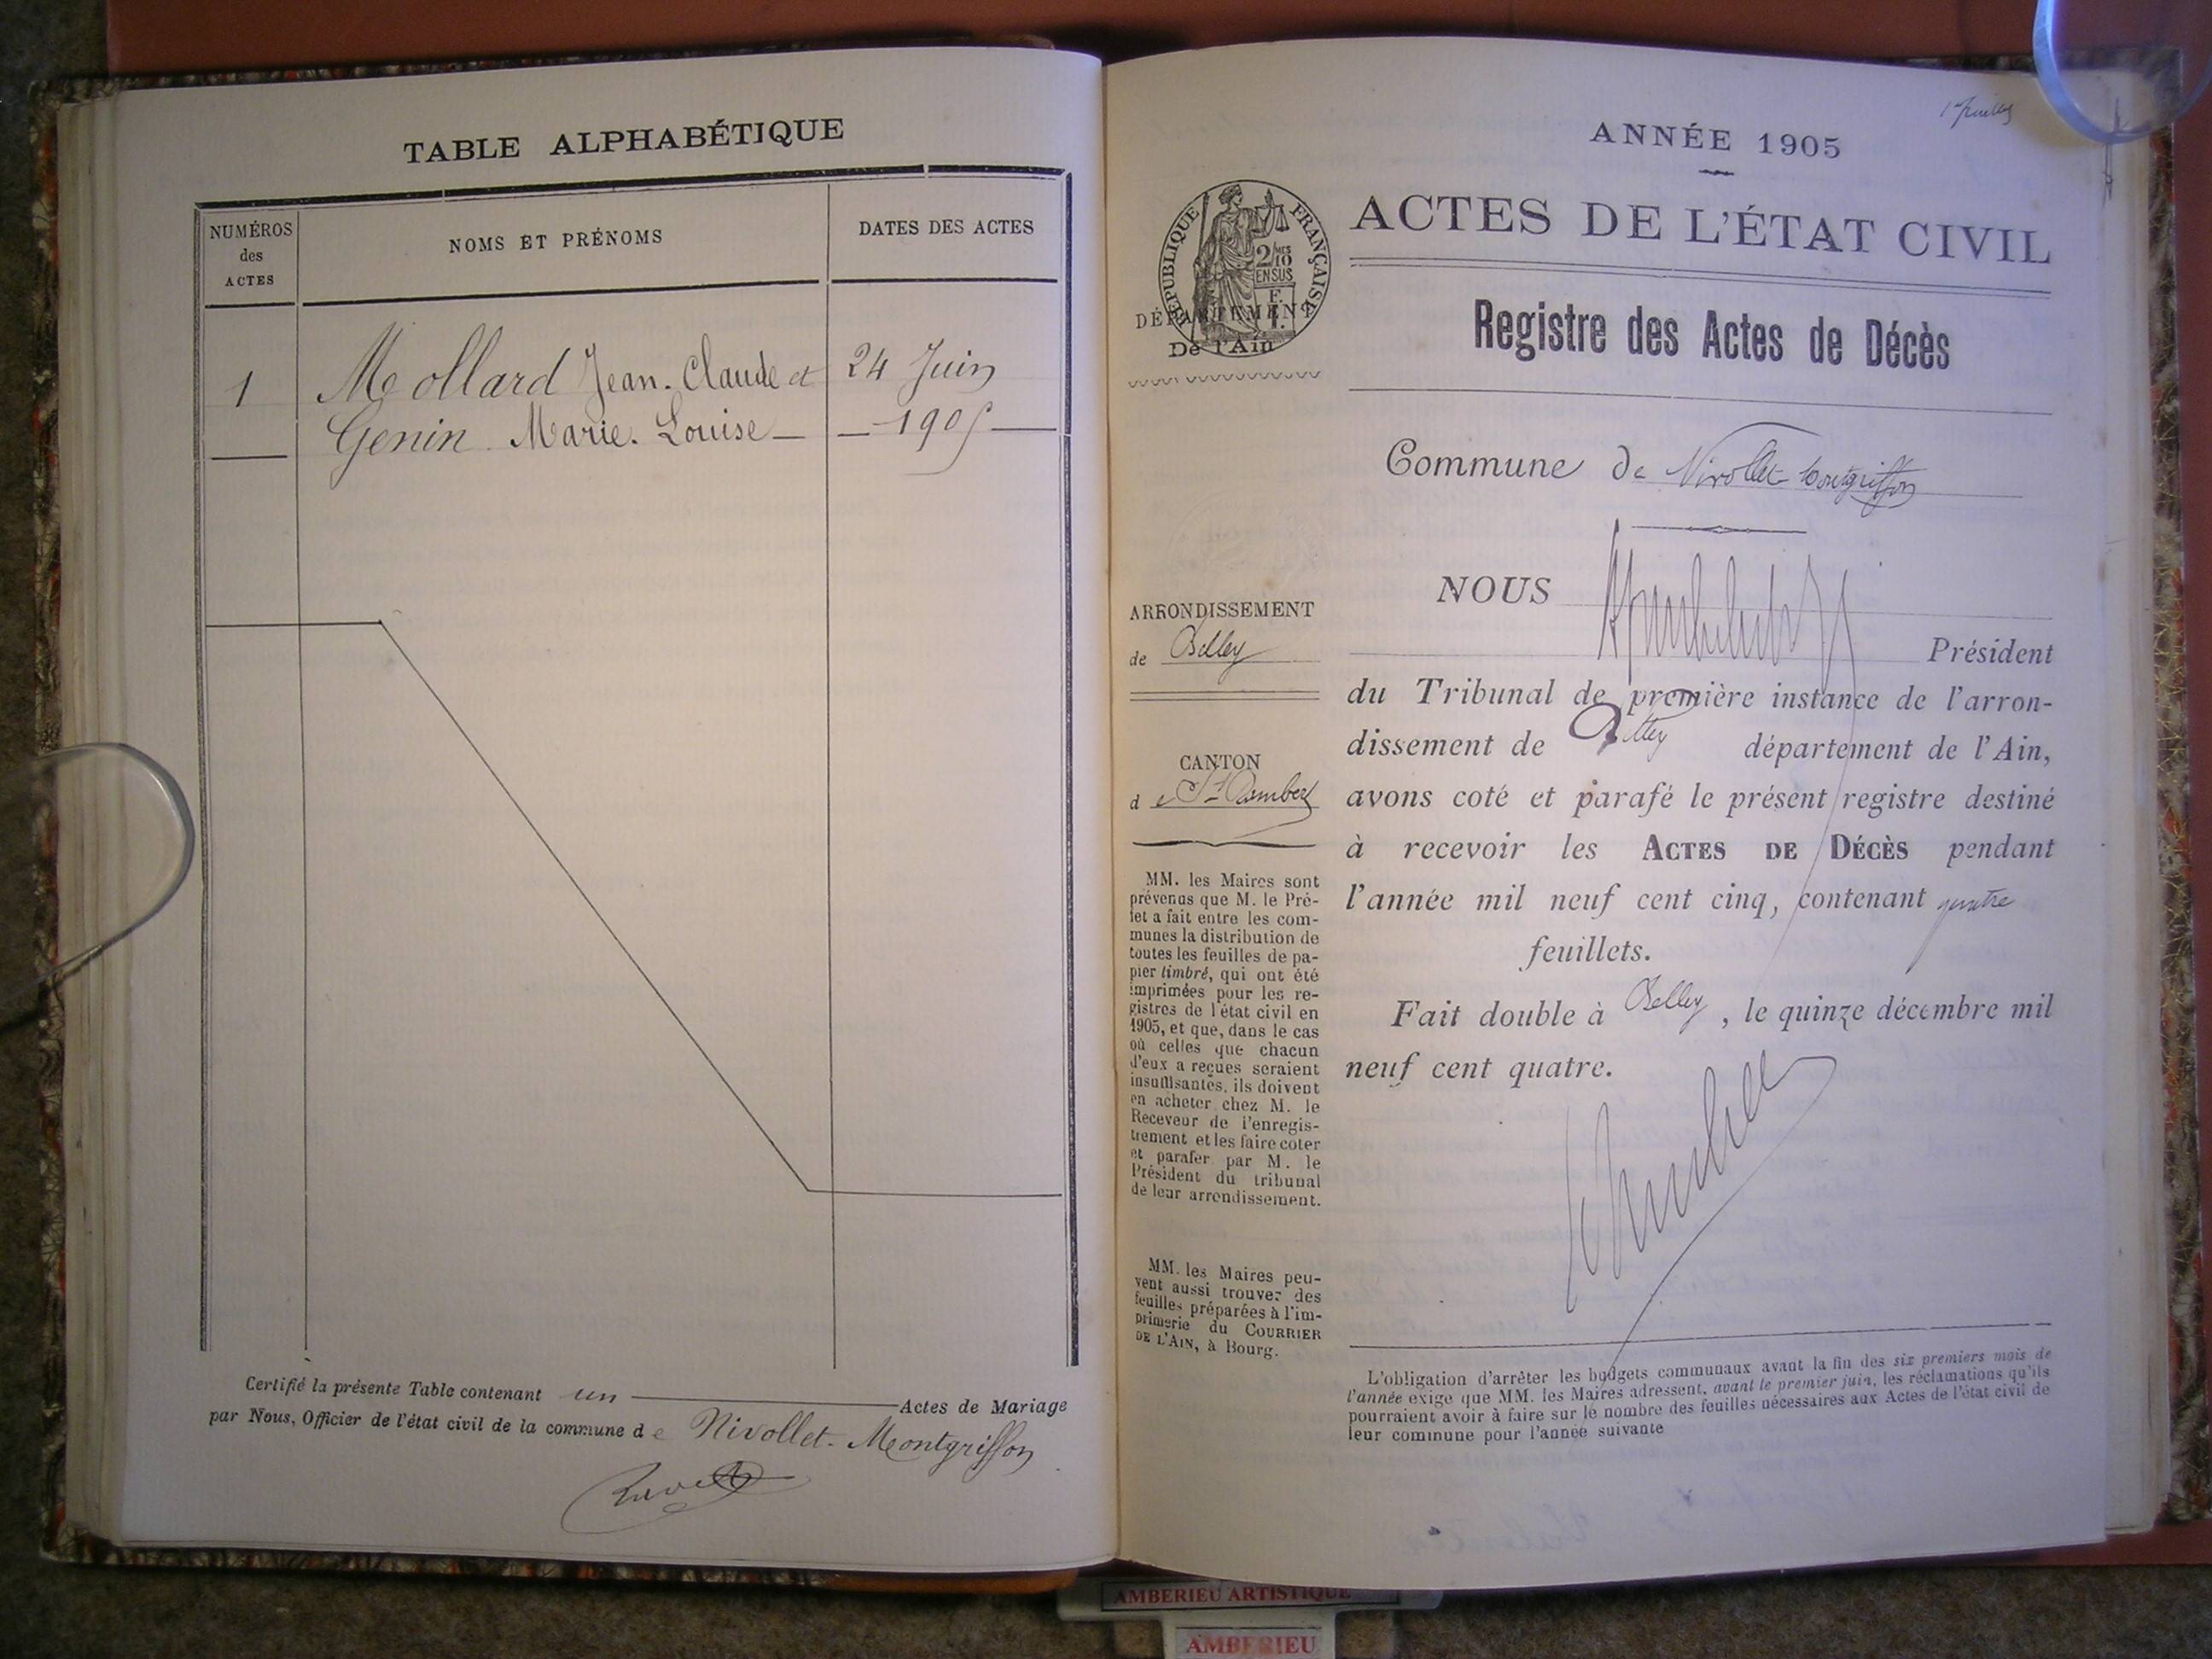 TABLE ALPHABÉTIQUE
NUMÉROS
des
ACTES
NOMS ET PRÉNOMS
DATES DES ACTES
1
Mollard Jean-Claude et
24 Juin
Genin Marie-Louise
1905
Certifié la présente Table contenant un Actes de Mariage
par Nous, Officier de l'état civil de la commune de Nivollet-Montgriffon
ANNÉE 1905
RÉPUBLIQUE FRANÇAISE
2/10
EN SUS
DÉPARTEMENT
De l'Ain
ACTES DE L'ÉTAT CIVIL
Registre des Actes de Décès
Commune de Nivollet-Montgriffon
ARRONDISSEMENT
de Belley
CANTON
de St Rambert
MM. les Maires sont
prévenus que M. le Pré-
fet a fait entre les com-
munes la distribution de
toutes les feuilles de pa-
pier timbré, qui ont été
imprimées pour les re-
gistres de l'état civil en
1905, et que, dans le cas
où celles que chacun
d'eux a reçues seraient
insuffisantes, ils doivent
en acheter chez M. le
Receveur de l'enregis-
trement et les faire coter
et parafer par M. le
Président du tribunal
de leur arrondissement.
MM. les Maires peu-
vent aussi trouver des
feuilles préparées à l'im-
primerie du COURRIER
DE L'AIN, à Bourg.
NOUS
Président
du Tribunal de première instance de l'arron-
dissement de Belley département de l'Ain,
avons coté et parafé le présent registre destiné
à recevoir les ACTES DE DÉCÈS pendant
l'année mil neuf cent cinq, contenant quatre
feuillets.
Fait double à Belley, le quinze décembre mil
neuf cent quatre.
L'obligation d'arrêter les budgets communaux avant la fin des six premiers mois de
l'année exige que MM. les Maires adressent, avant le premier juin, les réclamations qu'ils
pourraient avoir à faire sur le nombre des feuilles nécessaires aux Actes de l'état civil de
leur commune pour l'année suivante
AMBERIEU ARTISTIQUE
AMBERIEU